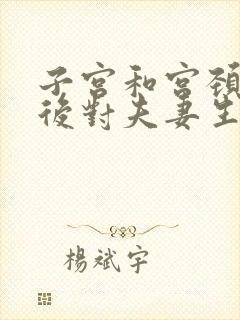 子宮和宮頸
後對夫妻生
楊斌宇